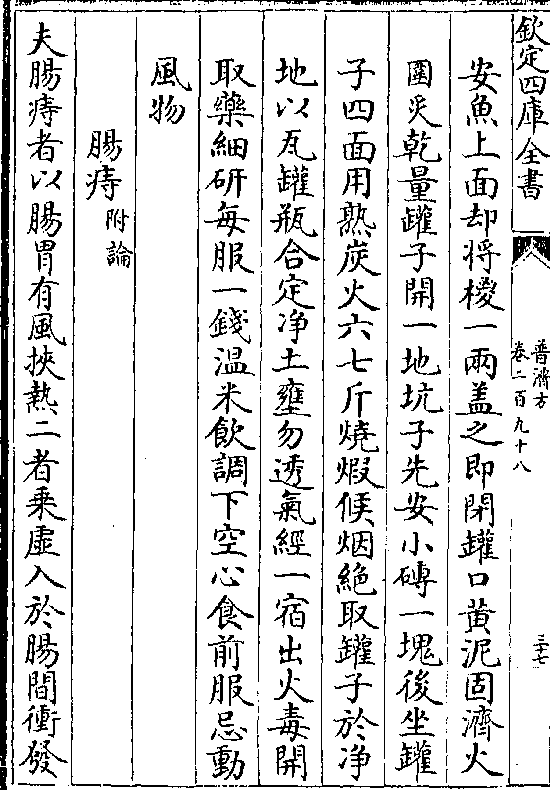 欽定四庫全書
普濟方
卷二百九十八
三十七
安魚上面却将椶一兩盖之即閉罐口黄泥固濟火
圍炙乾量罐子開一地坑子先安小磚一塊後坐罐
子四面用熟炭火六七斤燒煅候烟絶取罐子於净
地以瓦罐瓶合定净土壅勿透氣經一宿出火毒開
取藥細研每服一錢温米飲調下空心食前服忌動
風物
腸痔附論
夫腸痔者以腸胃有風挾熱二者乗虚入於腸間衝發